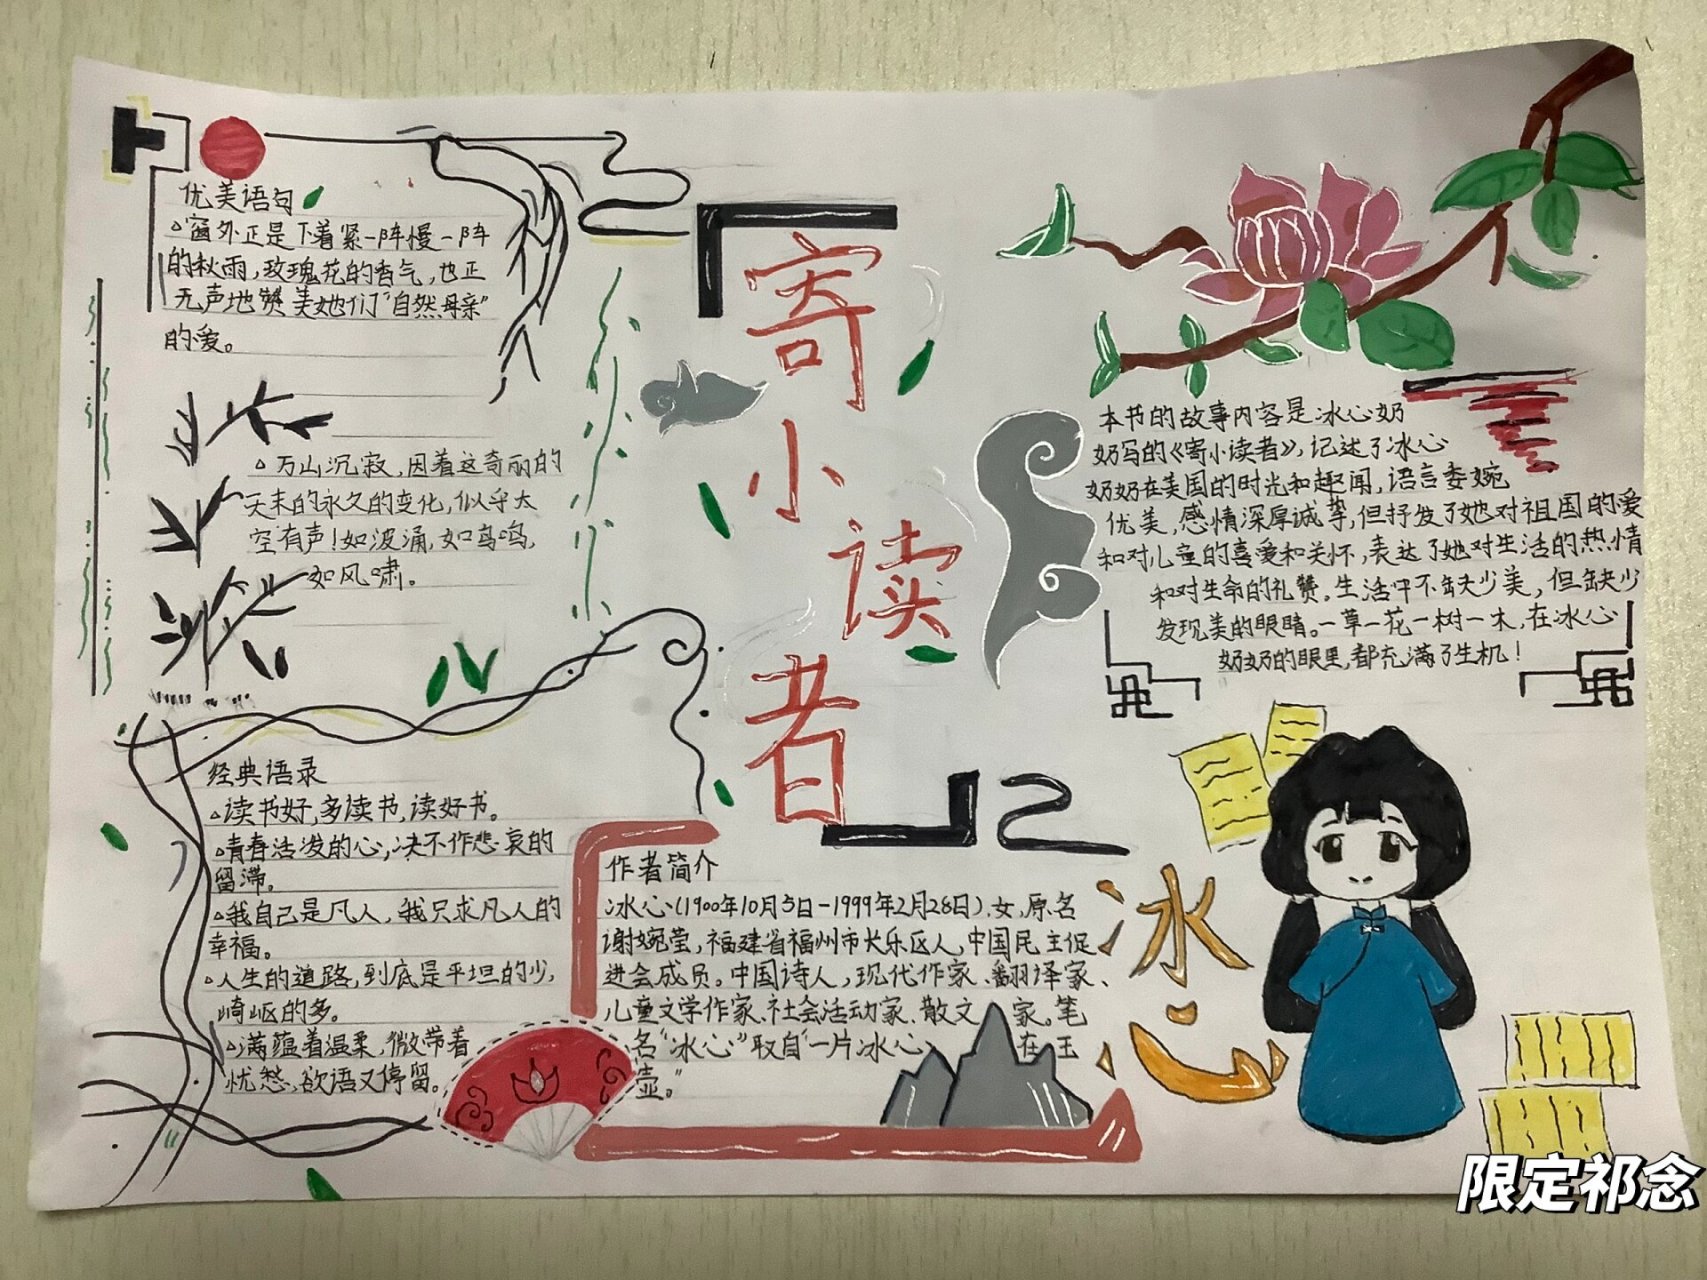 优美语句
△窗外正是下着紧一阵慢一阵
的秋雨,玫瑰花的香气,也正
无声地赞美她们“自然母亲”
的爱。
△万山沉寂,因着这奇丽的
天末的永久的变化,似乎太
空有声!如波涌,如鸟鸣,
如风啸。
经典语录
△读书好,多读书,读好书。
△青春活泼的心,决不作悲哀的
留滞。
△我自己是凡人,我只求凡人的
幸福。
△人生的道路,到底是平坦的少,
崎岖的多。
△满蕴着温柔,微带着
忧愁,欲语又停留。
寄小读者
作者简介
冰心(1900年10月5日-1999年2月28日),女,原名
谢婉莹,福建省福州市长乐区人,中国民主促
进会成员。中国诗人,现代作家、翻译家、
儿童文学作家、社会活动家、散文家。笔
名“冰心”取自“一片冰心在玉
壶。”
本书的故事内容是冰心奶
奶写的《寄小读者》,记述了冰心
奶奶在美国的时光和趣闻,语言委婉
优美,感情深厚诚挚,但抒发了她对祖国的爱
和对儿童的喜爱和关怀,表达了她对生活的热情
和对生命的礼赞。生活中不缺少美,但缺少
发现美的眼睛。一草一花一树一木,在冰心
奶奶的眼里,都充满了生机!
冰心
限定祁念